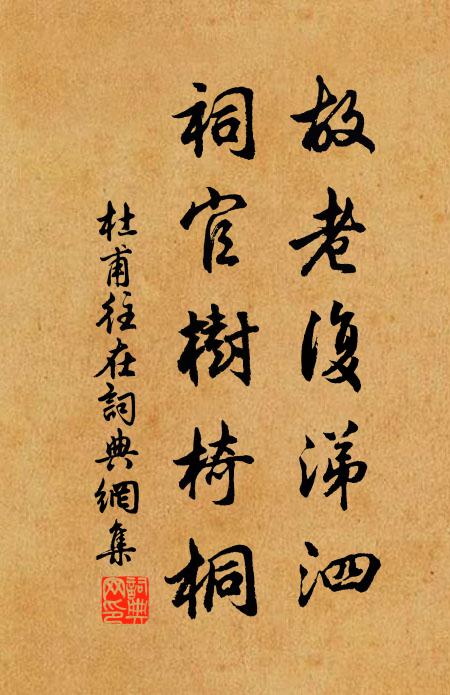 故老復涕泗
祠官樹椅桐
杜甫往在詞典網集
詞典網印